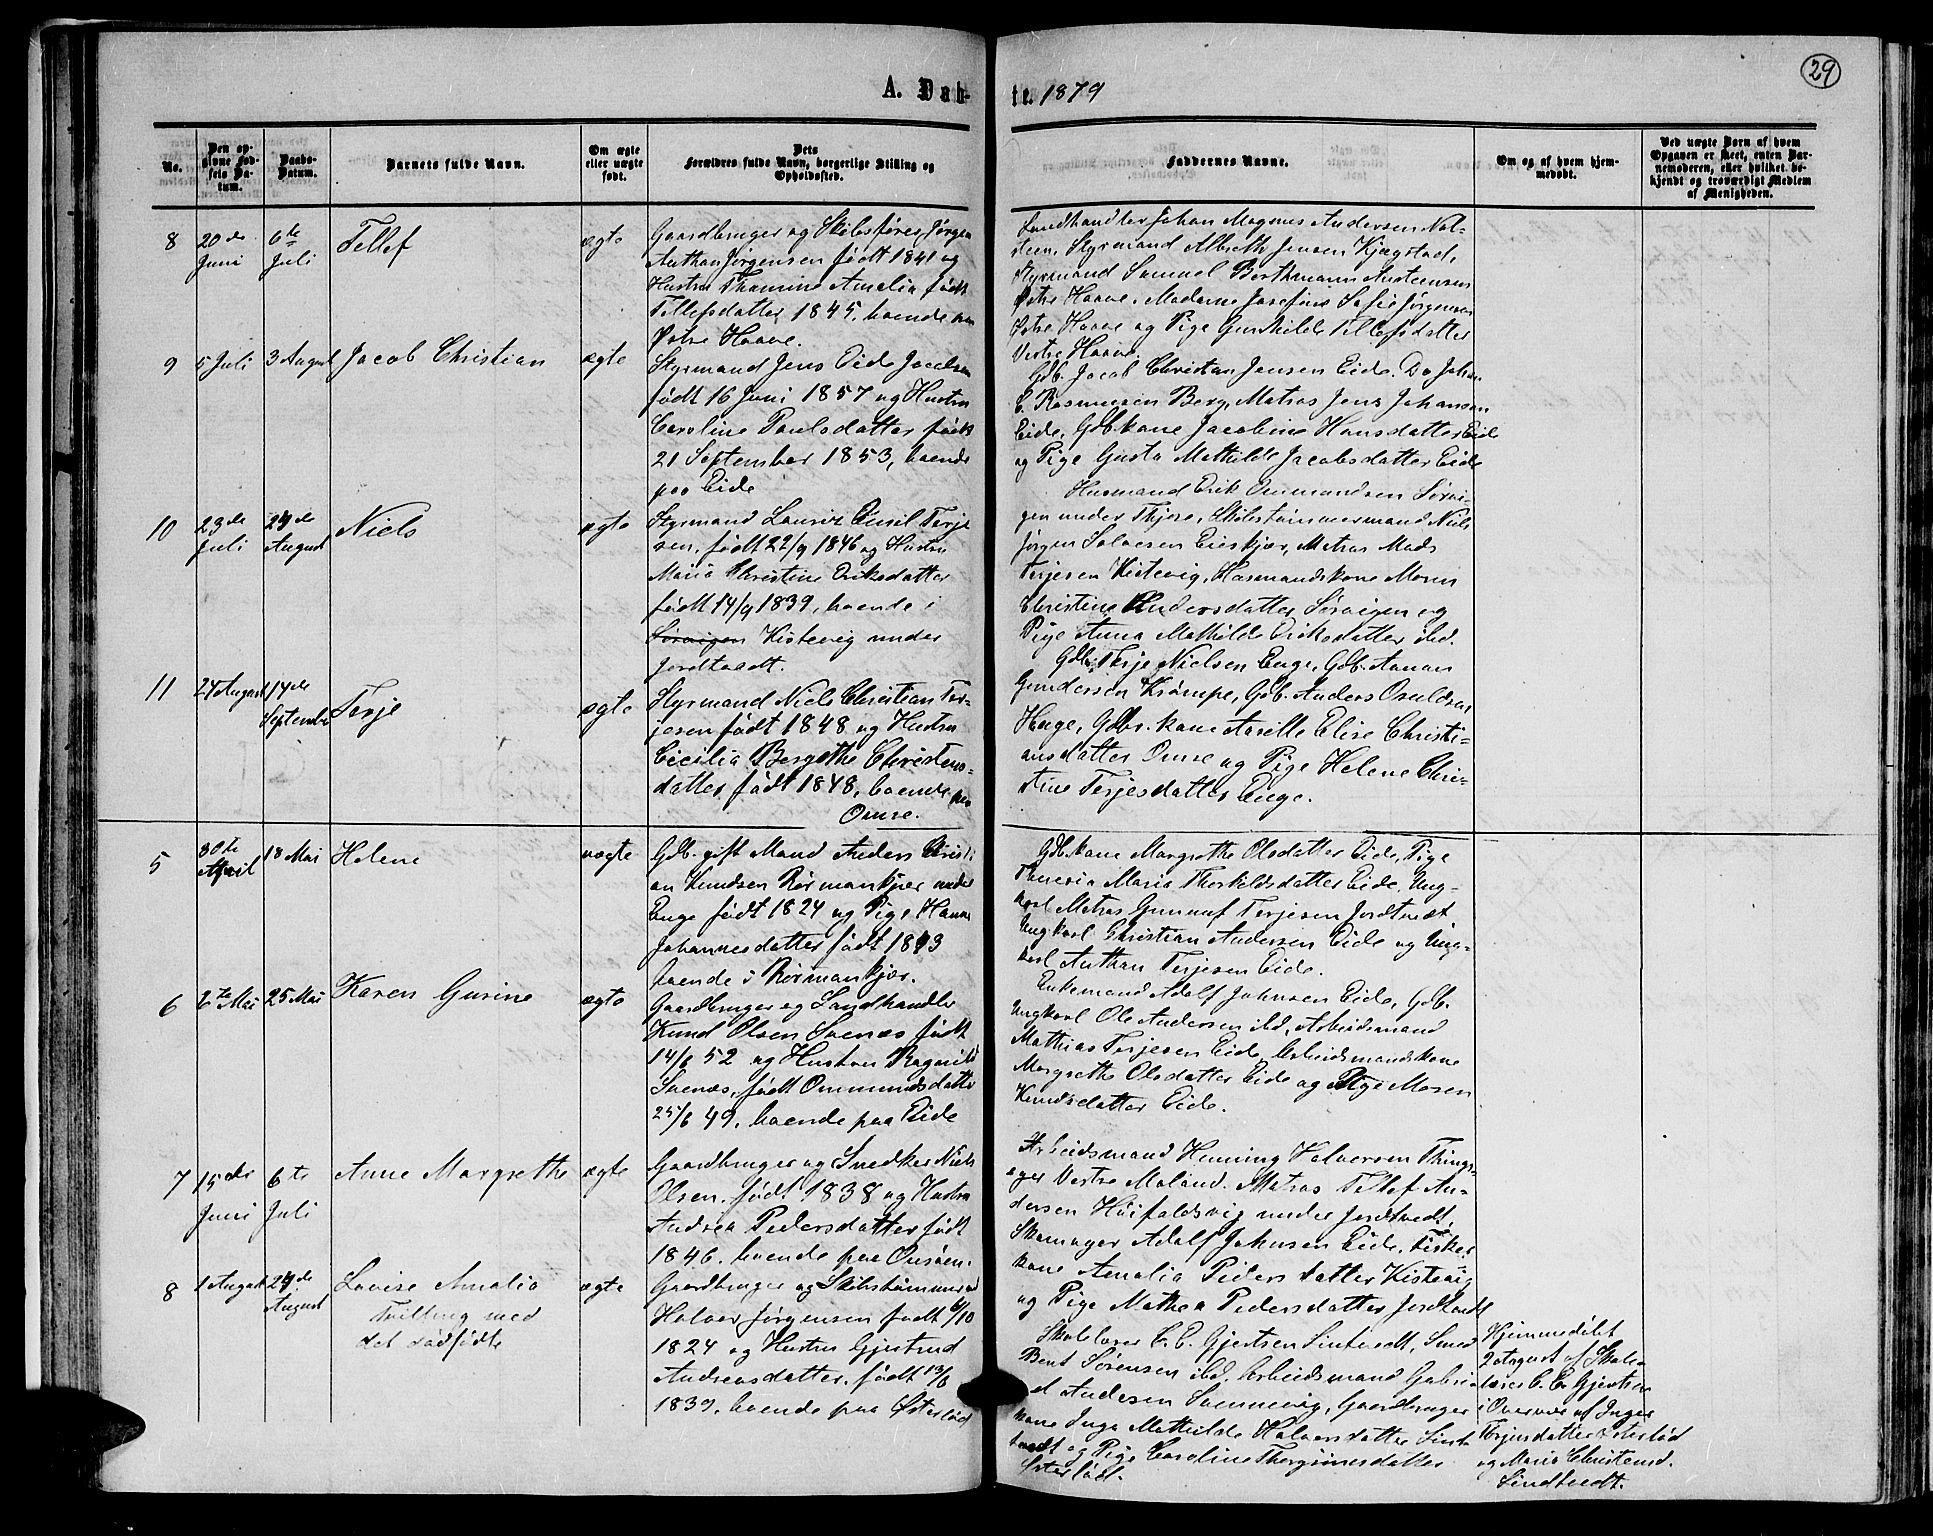 29
A. Daab-
te. 1879
No.
Den op-
givne Fød-
sels Da-
tum.
Daabs-
Datum.
Barnets fulde Navn.
Om ægte
eller uægte
født.
Dets
Forældres fulde Navn, borgerlige Stilling og
Opholdssted.
Faddernes Navne.
Om og af hvem hjem-
medøbt.
Ved uægte Børn af hvem
Opgaven er skeet, enten Bar-
nemoderen, eller hvilket be-
kjendt og troværdigt Medlem
af Menigheden.
8
20de
Juni
6te
Juli
Tellef
ægte
Gaardbruger og Skibsfører Jørgen
Anthon Jørgensen født 1841 og
Hustru Thomine Amalia født
Tellefsdatter 1845, boende paa
Østre Haave.
Landhandler Johan Magnus Andersen
Styrmand Albreth Jensen Kjægstad,
Styrmand Samuel Berthmann Austeensen
Østre Haave, Madame Josefine Sofie Jørgensen
Østre Haave og Pige Gunhilde Tellefsdatter
Vestre Haave.
9
5 Juli
3 August
Jacob Christian
ægte
Styrmand Jens Eide Jacobsen
født 16 Juni 1857 og Hustru
Caroline Paulsdatter født
21 September 1853, boende
paa Eide
Gdb. Jacob Christian Jensen Eide. Do Johan
C. Rasmusen Berg, Matros Jens Johansen
Eide, Gdb.kone Jacobine Hansdatter Eide
og Pige Gusta Mathilde Jacobsdatter Eide
10
23de
Juli
24de
August
Niels
ægte
Styrmand Lauriz Emil Terje
sen, født 22/9 1846 og Hustru
Maria Christine Eriksdatter
født 14/9 1839, boende i
Sørvigen Kistevig under
Jordtvedt.
Husmand Erik Ommundsen Sørvi-
gen under Thjore, Skibstømmermand Niels
Jørgen Salvesen Eieskjær, Matros Mads
Terjesen Kistevig, Husmandskone Maren
Christine Andersdatter Sørvigen og
Pige Anna Mathilde Eriksdatter ibd.
11
24 August
14de
September
Terje
ægte
Styrmand Niels Christian Ter-
jesen født 1848 og Hustru
Cecilia Bergithe Christens-
datter, født 1848, boende paa
Omre.
Gdb. Terje Nielsen Enge, Gdb. Aanon
Gundersen Krømpe, Gdb. Anders Osuldsen
Hauge, Gdbr. kone Aarelle Elise Christi-
ansdatter Omre og Pige Helene Chri-
stine Terjesdatter Enge.
5
30te
April
18 Mai
Helene
uægte
Gdb. gift Mand Anders Christi
an Knudsen Rørmankjær under
Enge født 1824 og Pige Hanne
Johannesdatter født 1843
boende i Rørmankjær.
Gdb.kone Margrethe Olsdatter Eide, Pige
Theresia Maria Thorkildsdatter Eide, Ung-
karl Matros Gunnuf Terjesen Jordtvedt
Ungkarl Christian Andersen Eide og Ung-
karl Anthon Terjesen Eide.
6
2te Mai
25 Mai
Karen Gurine
ægte
Gaardbruger og Landhandler
Knud Olsen Svenæs født
14/6 52 og Hustru Ragnild
Svenæs, født Ommundsdatter
25/6 49, boende paa Eide
Enkemand Adolf Johnsen Eide, Gdb.
Ungkarl Ole Andersen ibd, Arbeidsmand
Mathias Terjesen Eide, Arbeidsmandskone
Margrethe Olsdatter Eide og Pige Maren
Knudsdatter Eide.
7
15de
Juni
6te
Juli
Anne Margrethe
ægte
Gaardbruger og Snedker Niels
Olsen, født 1838 og Hustru
Andrea Pedersdatter født
1846, boende paa
Arbeidsmand Henning Halvorsen Things-
ager Vestre Moland. Matros Tellef An-
dersen Høifaldsvig under Jordtvedt,
Skomager Adolf Johnsen Eide, Fisker-
kone Amalia Pedersdatter Kistevig
og Pige Mathea Pedersdatter Jordtvedt
8
1 August
24de
August
Lovise Amalia
Tvilling med
det dødfødte
ægte
Gaardbruger og Skibstømmermand
Halvor Jørgensen født 6/10
1824 og Hustru Gjertrud
Andreasdatter, født 13/6
1839, boende paa Østerlød
Skolelærer C. C. Gjertsen Lintvedt, Smed
Bent Sørensen ibd, Arbeidsmand Gabrie
el Andersen Sømmevig, Gaardbruger
kone Inga Mathilde Halvorsdatter Lint
tvedt og Pige Caroline Thorgrimsdatter
Østerlød.
Hjemmedøbt
2 August af Skole-
lærer C. C. Gjertsen
i Overvær af Inger
Terjesdatter Østerlød
og Maria Christensd.
Lindtvedt.